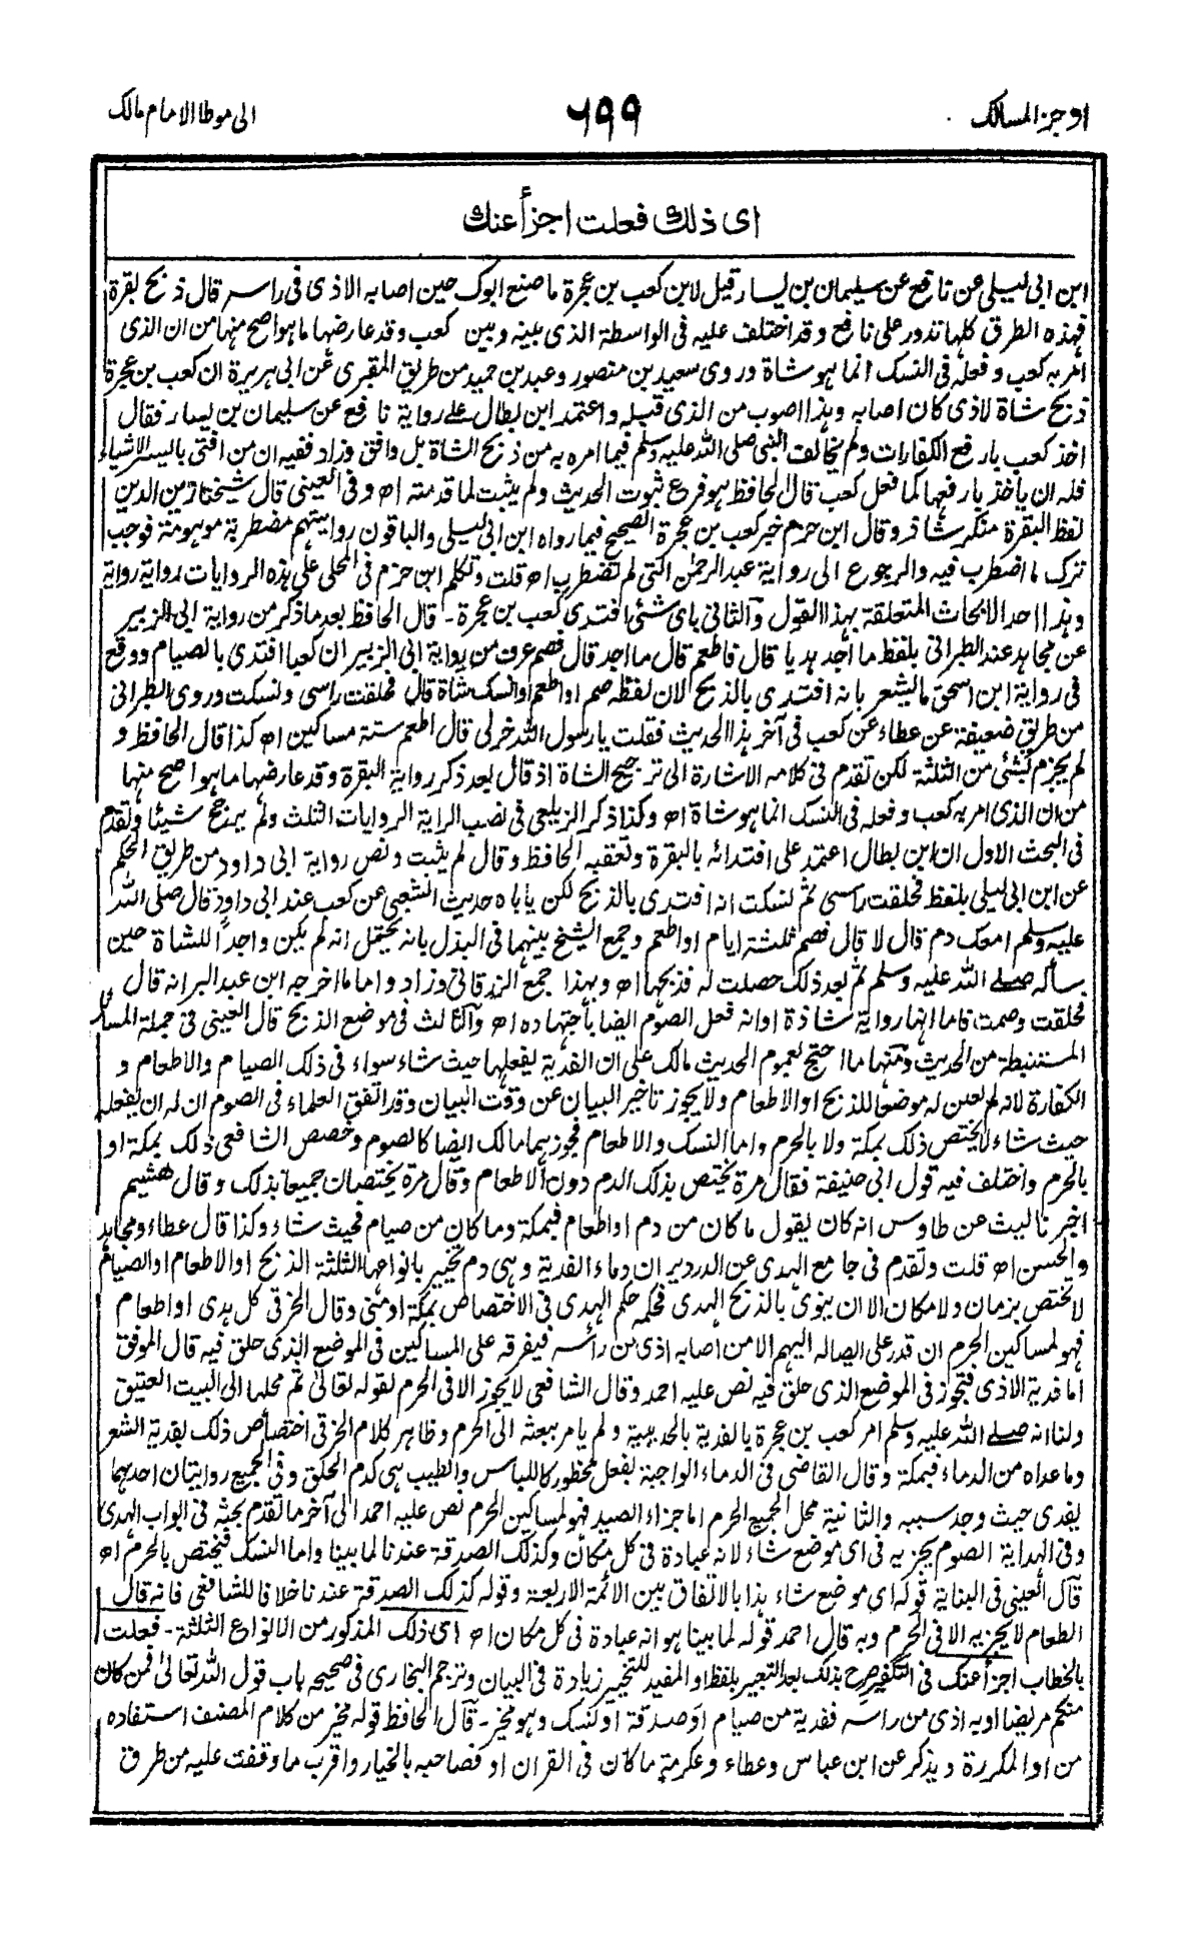 اوجز المسالك
٦٩٩
الى موطا الامام مالك
اى ذلك فعلت اجزأ عنك
ابن ابى ليلى عن نافع عن سليمان بن يسار قيل لابن كعب بن عجرة ما صنع ابوك حين اصابه الاذى فى راسه قال ذبح بقرة
فهذه الطرق كلها تدور على نافع وقد اختلف عليه فى الواسطة الذى بينه وبين كعب وقد عارضها ما هو اصح منها من ان الذى
امر به كعب وفعله فى النسك انما هو شاة وروى سعيد بن منصور وعبد بن حميد من طريق المقبرى عن ابى هريرة ان كعب بن عجرة
ذبح شاة لاذى كان اصابه وهذا اصوب من الذى قبله واعتمد ابن بطال على رواية نافع عن سليمان بن يسار فقال
اخذ كعب بارفع الكفارات ولم يخالف النبى صلى الله عليه وسلم فيما امره به من ذبح الشاة بل وافق وزاد ففيه ان من افتى بايسر الاشياء
فله ان ياخذ بارفعها كما فعل كعب قال الحافظ هو فرع ثبوت الحديث ولم يثبت لما قدمته اه وفى العينى قال شيخنا زين الدين
لفظ البقرة منكر شاذ وقال ابن حزم خبر كعب بن عجرة الصحيح فيما رواه ابن ابى ليلى والباقون روايتهم مضطربة موهومة فوجب
ترك ما اضطرب فيه والرجوع الى رواية عبد الرحمن التى لم تضطرب اه قلت وتكلم ابن حزم فى المحلى على هذه الروايات رواية رواية
وهذا احد الابحاث المتعلقة بهذا القول والثانى باى شئى افتدى كعب بن عجرة - قال الحافظ بعد ما ذكر من رواية ابى الزبير
عن مجاهد عند الطبرانى بلفظ ما أجد هديا قال فاطعم قال ما اجد قال فصم عرف من رواية ابى الزبير ان كعبا افتدى بالصيام ووقع
فى رواية ابن اسحق ما يشعر بانه افتدى بالذبح لان لفظه صم او اطعم او انسك شاة قال فحلقت راسى ونسكت وروى الطبرانى
من طريق ضعيفة عن عطاء عن كعب فى آخر هذا الحديث فقلت يا رسول الله خر لى قال اطعم ستة مساكين اه كذا قال الحافظ و
لم يجزم بشئى من الثلثة لكن تقدم فى كلامه الاشارة الى ترجيح الشاة اذ قال بعد ذكر رواية البقرة وقد عارضها ما هو اصح منها
من ان الذى امر به كعب وفعله فى النسك انما هو شاة اه وكذا ذكر الزيلعى فى نصب الراية الروايات الثلث ولم يرجح شيئا وتقدم
فى البحث الاول ان ابن بطال اعتمد على افتدائه بالبقرة وتعقبه الحافظ وقال لم يثبت ونص رواية ابى داود من طريق الحكم
عن ابن ابى ليلى بلفظ فحلقت راسى ثم نسكت انه افتدى بالذبح لكن ياباه حديث الشعبى عن كعب عند ابى داود قال صلى الله
عليه وسلم امعك دم قال لا قال فصم ثلثة ايام او اطعم وجمع الشيخ بينهما فى البذل بانه يحتمل انه لم يكن واجدا للشاة حين
سأله صلى الله عليه وسلم ثم بعد ذلك حصلت له فذبحها اه وبهذا جمع الزرقانى وزاد واما ما اخرجه ابن عبد البر انه قال
فحلقت وصمت فاما انها رواية شاذة او انه فعل الصوم ايضا باجتهاده اه والثالث فى موضع الذبح قال العينى فى جملة المسائل
المستنبطة من الحديث ومنها ما احتج بعموم الحديث مالك على ان الفدية يفعلها حيث شاء سواء فى ذلك الصيام والاطعام و
الكفارة لانه لم يعين له موضعا للذبح او الاطعام ولا يجوز تاخير البيان عن وقت البيان وقد اتفق العلماء فى الصوم ان له ان يفعله
حيث شاء لا يختص ذلك بمكة ولا بالحرم واما النسك والاطعام فجوزهما مالك ايضا كالصوم وخصص الشافعى ذلك بمكة او
بالحرم واختلف فيه قول ابى حنيفة فقال مرة يختص بذلك الدم دون الاطعام وقال مرة يختصان جميعا بذلك وقال هشيم
اخبرنا ليث عن طاوس انه كان يقول ما كان من دم او اطعام فبمكة وما كان من صيام فحيث شاء وكذا قال عطاء ومجاهد
والحسن اه قلت وتقدم فى جامع الهدى عن الدردير ان دماء الفدية وهى دم تخيير بانواعها الثلثة الذبح او الاطعام او الصيام
لا تختص بزمان ولا مكان الا ان ينوى بالذبح الهدى فحكمه حكم الهدى فى الاختصاص بمكة او منى وقال الخرقى كل هدى او اطعام
فهو لمساكين الحرم ان قدر على ايصاله اليهم الا من اصابه اذى من رأسه فيفرقه على المساكين فى الموضع الذى حلق فيه قال الموفق
اما فدية الاذى فتجوز فى الموضع الذى حلق فيه نص عليه احمد وقال الشافعى لا يجوز الا فى الحرم لقوله تعالى ثم محلها الى البيت العتيق
ولنا انه صلى الله عليه وسلم امر كعب بن عجرة بالفدية بالحديبية ولم يامر ببعثه الى الحرم وظاهر كلام الخرقى اختصاص ذلك بفدية الشعر
وما عداه من الدماء فبمكة وقال القاضى فى الدماء الواجبة بفعل محظور كاللباس والطيب هى كدم الحلق وفى الجميع روايتان احدهما
يفدى حيث وجد سببه والثانية محل الجميع الحرم اما جزاء الصيد فهو لمساكين الحرم نص عليه احمد الى آخر ما تقدم بحثه فى ابواب الهدى
وفى الهداية الصوم يجزيه فى اى موضع شاء لانه عبادة فى كل مكان وكذلك الصدقة عندنا لما بينا واما النسك فيختص بالحرم اه
قال العينى فى البناية قوله اى موضع شاء هذا بالاتفاق بين الائمة الاربعة وقوله كذلك الصدقة عندنا خلافا للشافعى فانه قال
الطعام لا يجزيه الا فى الحرم وبه قال احمد قوله لما بينا هو انه عبادة فى كل مكان اه اى ذلك المذكور من الانواع الثلثة - فعلت
بالخطاب اجزأ عنك فى التكفير صرح بذلك بعد التعبير بلفظ او المفيد للتخيير زيادة فى البيان وترجم البخارى فى صحيحه باب قول الله تعالى فمن كان
منكم مريضا او به اذى من راسه ففدية من صيام او صدقة او نسك وهو مخير - قال الحافظ قوله مخير من كلام المصنف استفاده
من او المكررة ويذكر عن ابن عباس وعطاء وعكرمة ما كان فى القران او فصاحبه بالخيار واقرب ما وقفت عليه من طرق